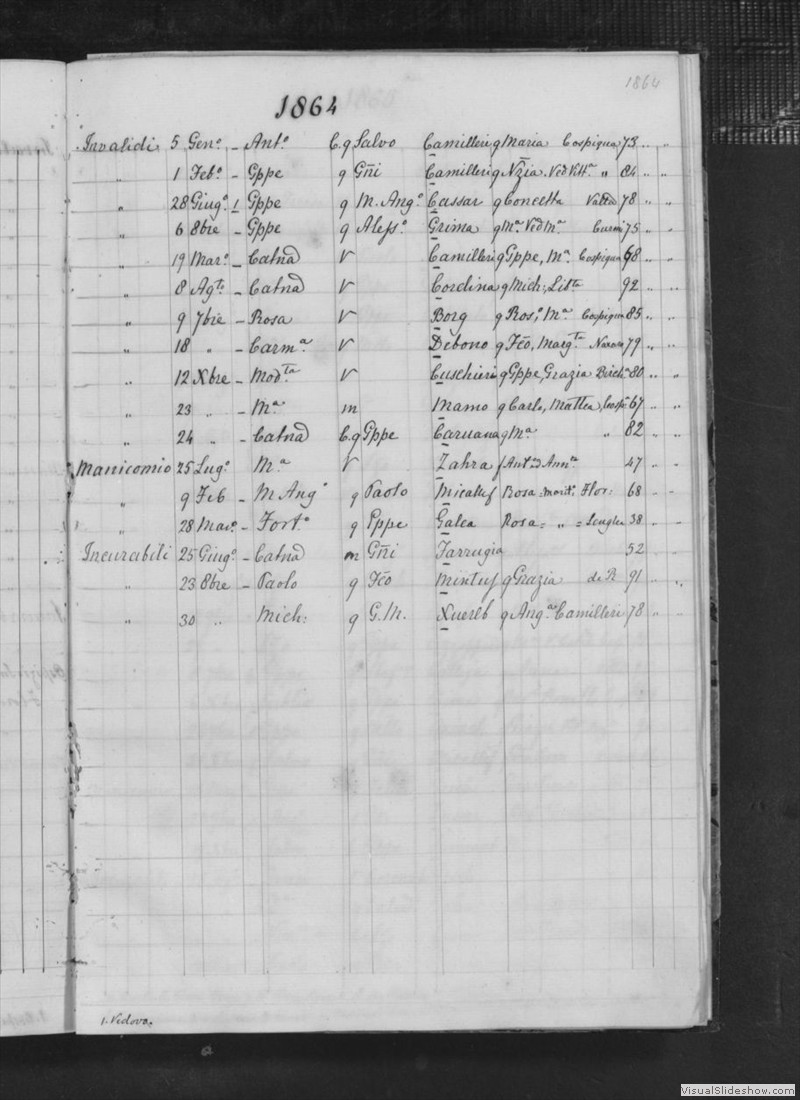 1864
1864
Invalidi 5 Gen.º - Ant.º C. q Salvo Camilleri q Maria Cospiqua 73 " "
" 1 Feb.º - Gppe q Gñi Camilleri q Nzia Ved Vitt.ª " 84 " "
" 28 Giug.º 1 Gppe q M. Ang.º Cassar q Concetta Valtta 78 " "
" 6 8bre - Gppe q Aless.º Grima q M.ª Ved M.ª Curmi 75 " "
" 19 Mar.º - Catnã V Camilleri q Gppe, M.ª Cospiqua 68 " "
" 8 Ag.to - Catnã V Cordina q Mich:, List.ta 92 " "
" 9 7bre - Rosa V Borg q Ros.º, M.ª Cospiqua 85 " "
" 18 " - Carm.ª V Debono q Fcõ, Marg.ta 79 " "
" 12 Xbre - Mod.ta V Cuschieri q Gppe, Grazia Birch.ª 80 " "
" 23 " - M.ª m Mamo q Carlo, Mattea, Cosp.ª 67 " "
" 24 " - Catnã C. q Gppe Caruana q M.ª " 82 " "
Manicomio 25 Lug.º M.ª V Zahra f Ant.º d Ann.ta 47 " "
" 9 Feb - M Ang.º q Paolo Micallef Rosa : marit.: Flor: 68 " "
" 28 Mar.º - Fort.º q Gppe Galea Rosa = " = Senglea 38 " "
Incurabili 25 Giug.º - Catnã m Gñi Farrugia 52 " "
" 23 8bre - Paolo q Fcõ Mintuf q Grazia de B 91 " "
" 30 " Mich: q G. M. Xuereb q Ang.ª Camilleri 78 " "
1. Vedova.
VisualSlideshow.com